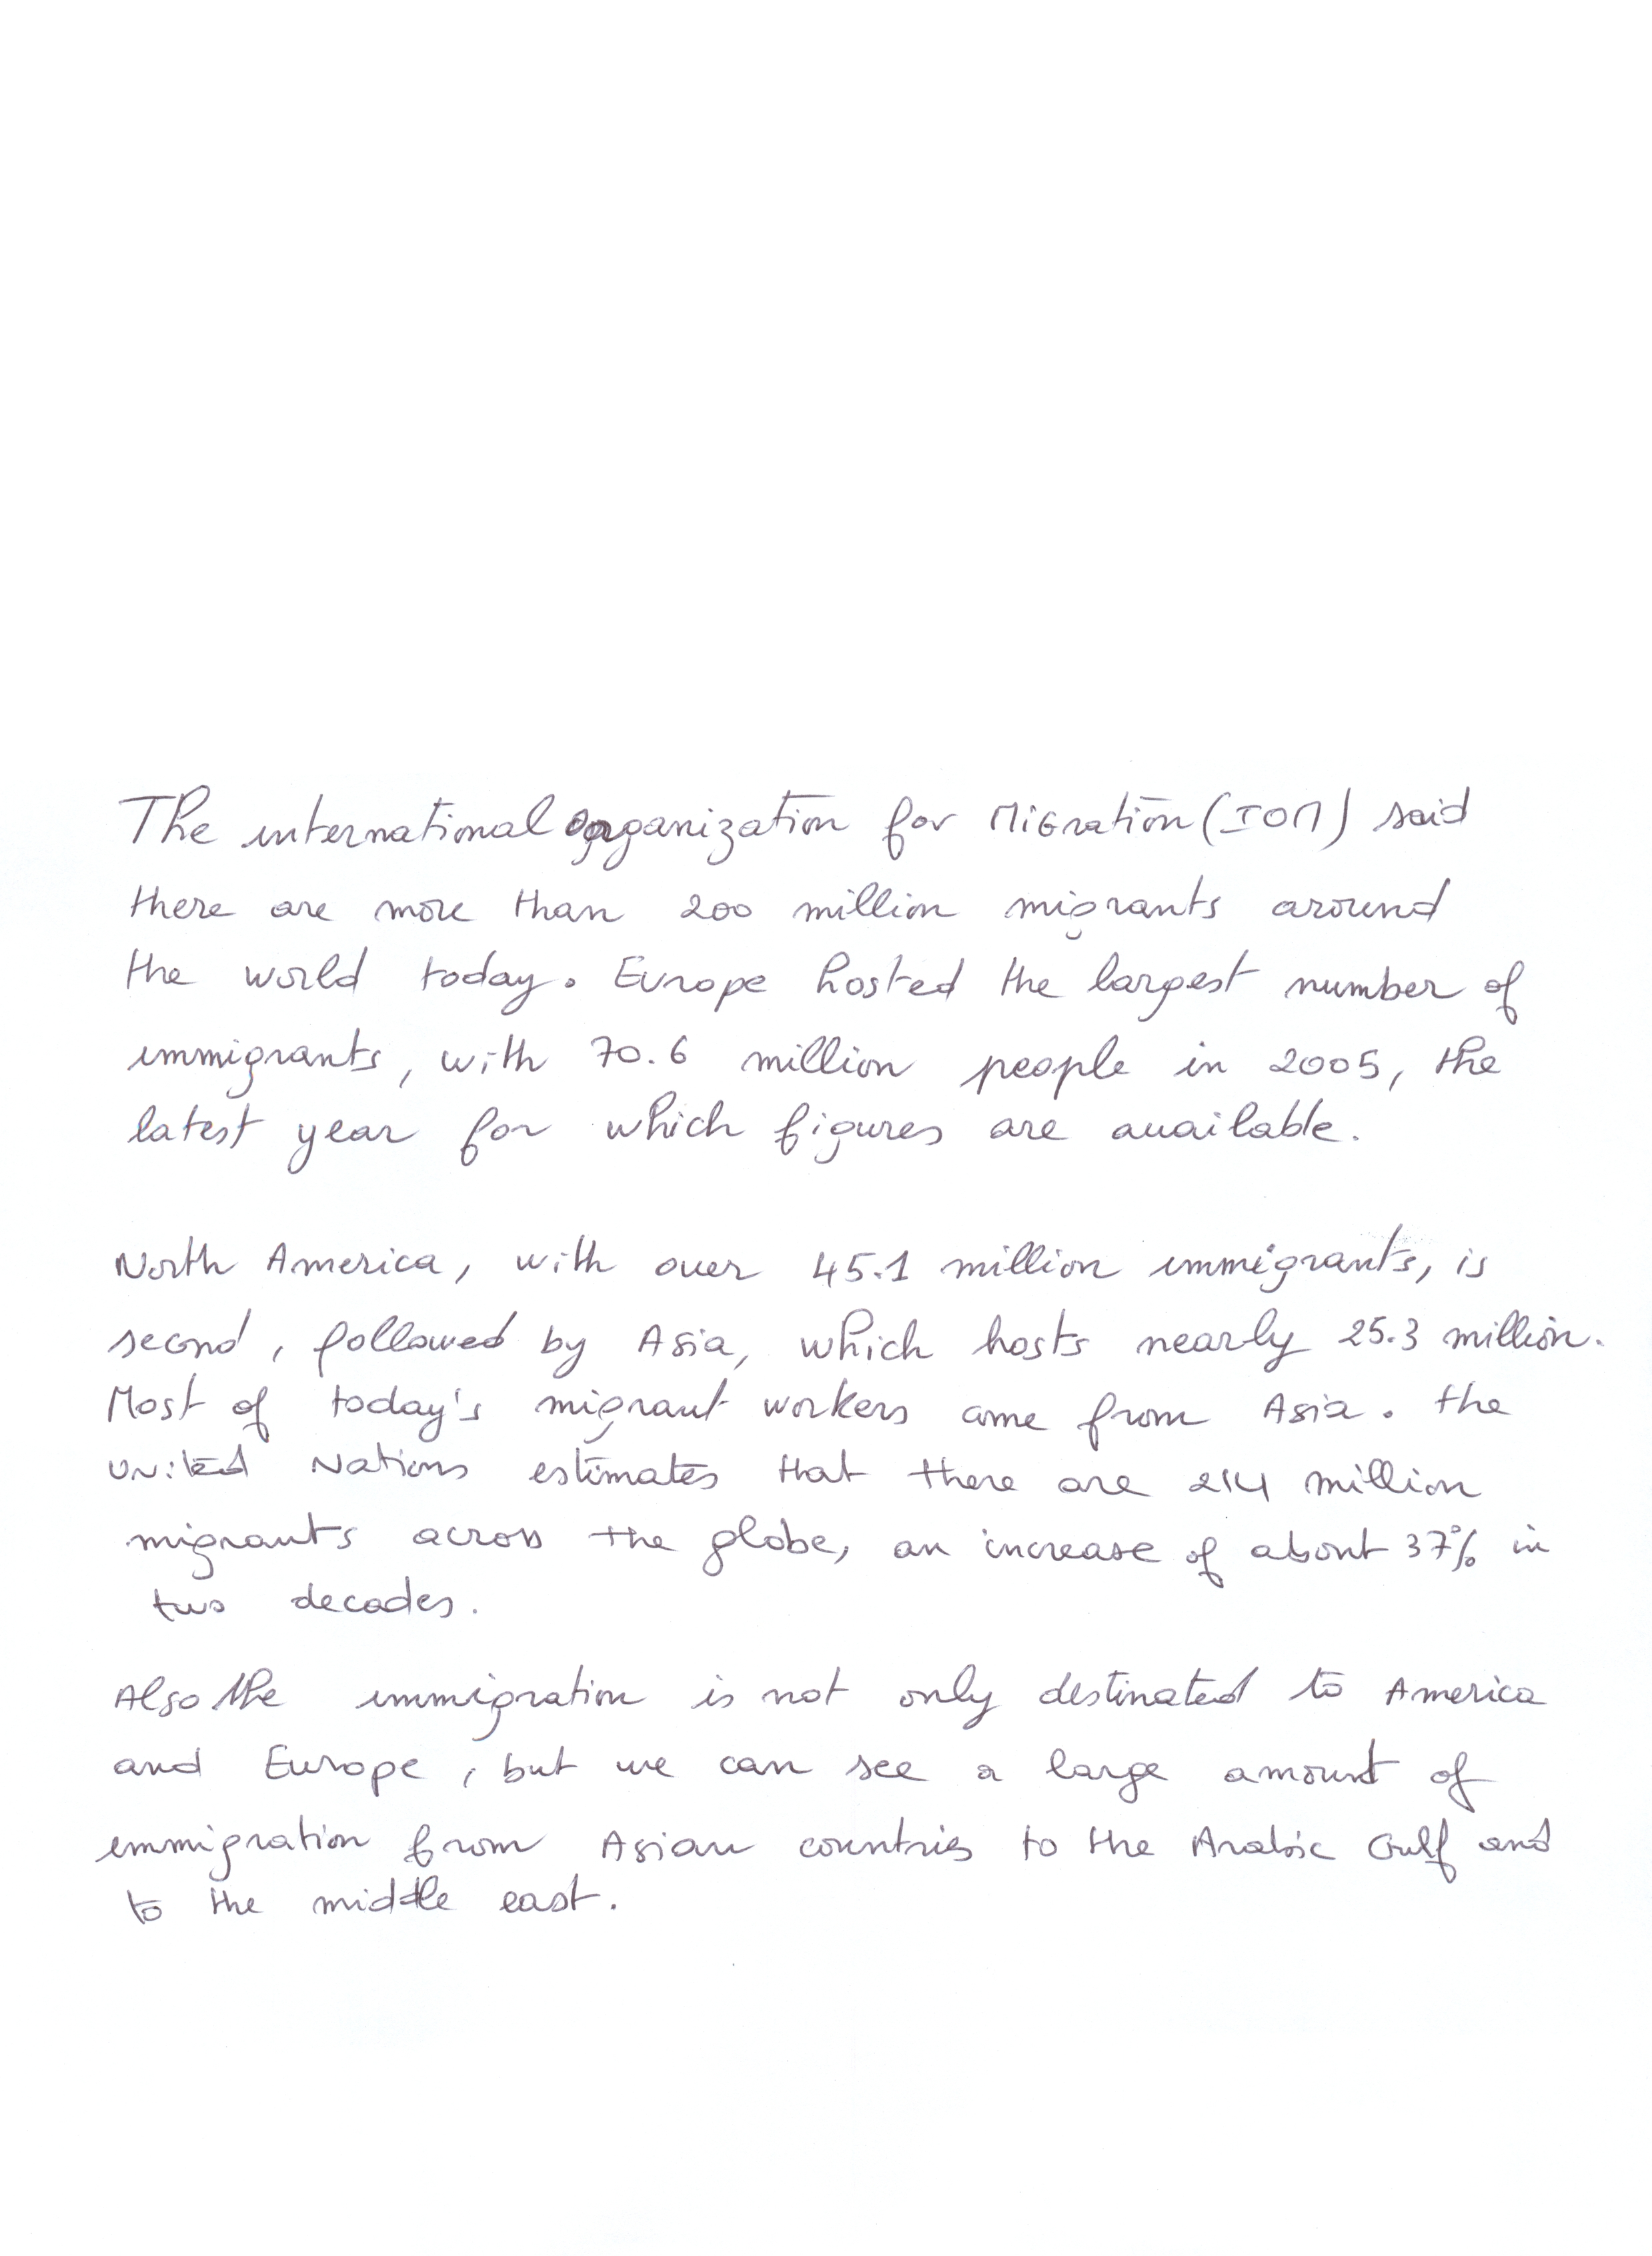 The international Organization for Migration (IOM) said
there are more than 200 million migrants around
the world today. Europe hosted the largest number of
immigrants, with 70.6 million people in 2005, the
latest year for which figures are available.
North America, with over 45.1 million immigrants, is
second, followed by Asia, which hosts nearly 25.3 million.
Most of today's migrant workers come from Asia. the
United Nations estimates that there are 214 million
migrants across the globe, an increase of about 37% in
two decades.
Also the immigration is not only destinated to America
and Europe, but we can see a large amount of
emmigration from Asian countries to the Arabic Gulf and
to the middle east.